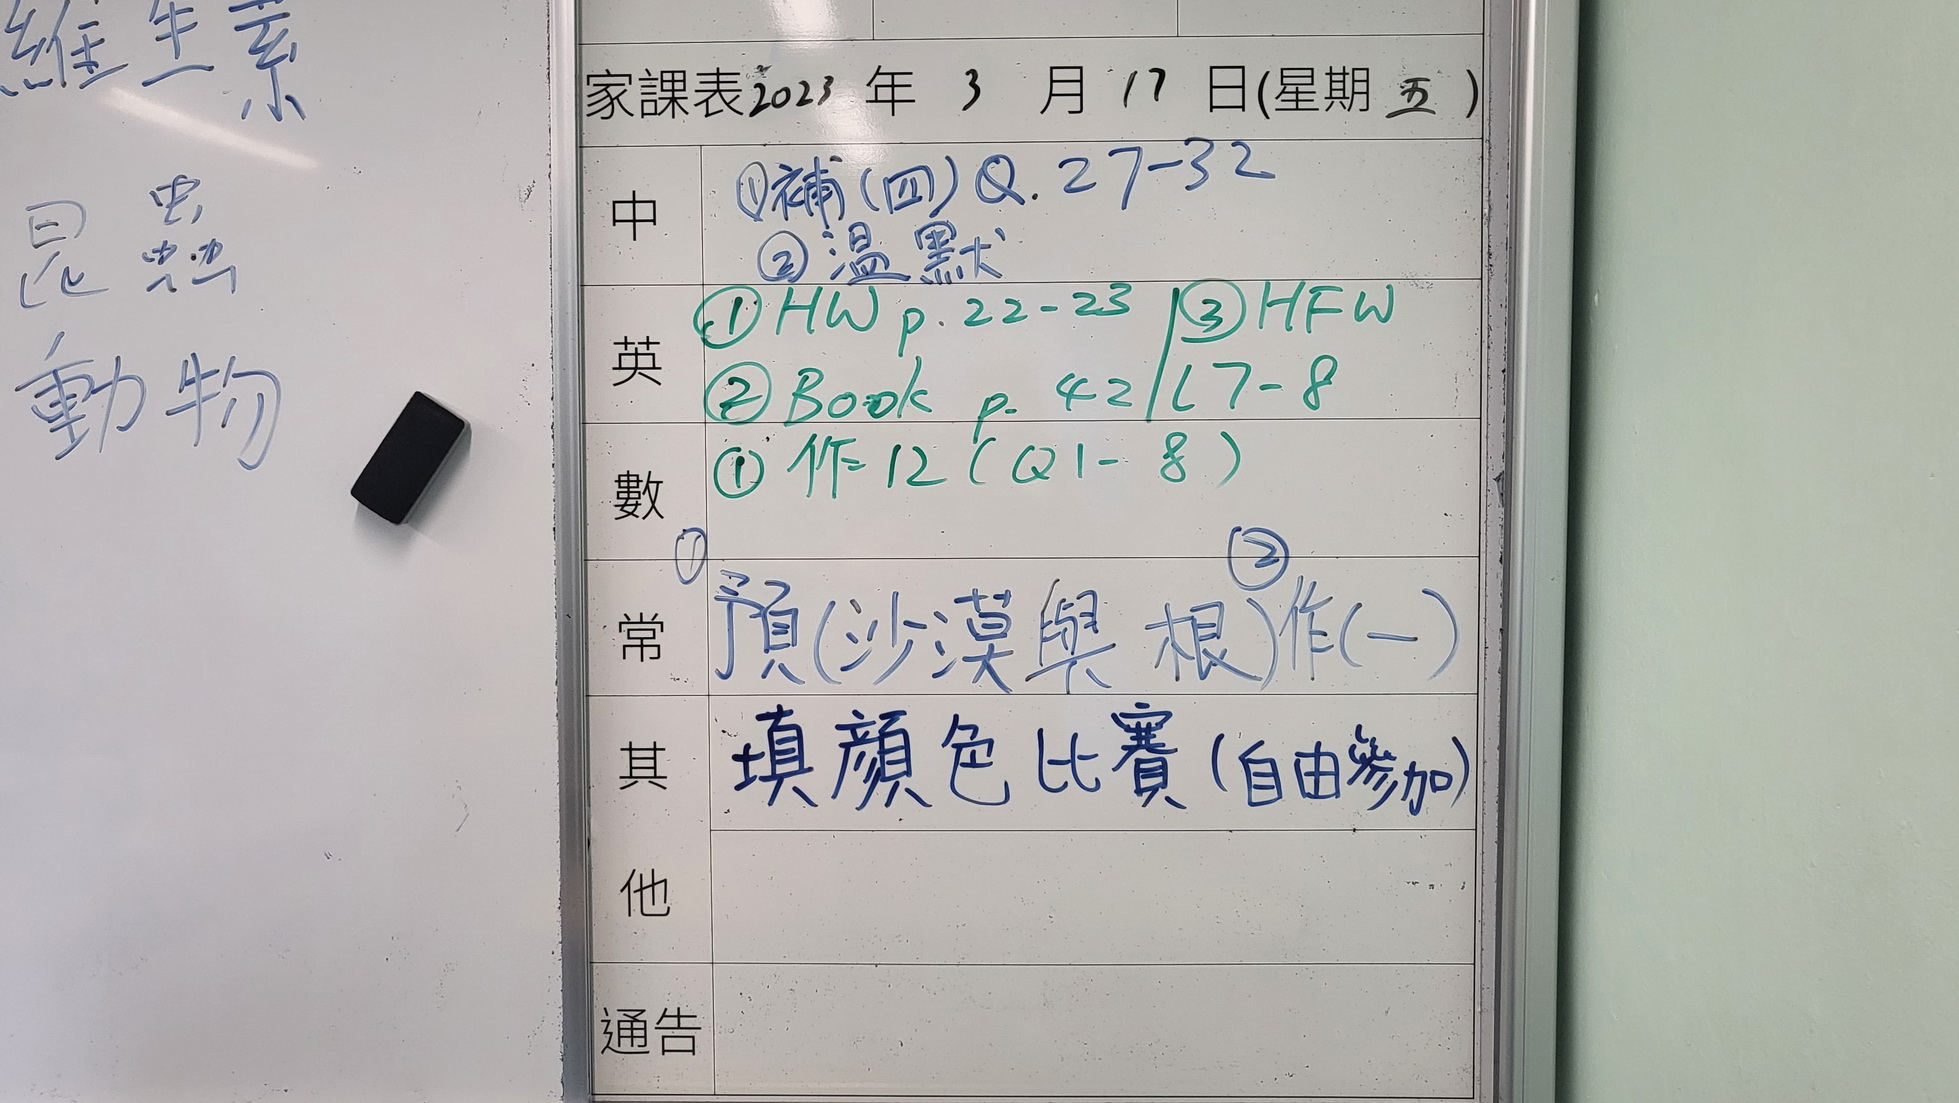 維生素
昆蟲
動物
家課表2023年3月17日(星期五)
中
①補(四)Q.27-32
②溫默
英
①HW p.22-23
②Book p.42
③HFW
L7-8
數
①作12(Q1-8)
常
①預(沙漠與根)②作(一)
其他
填顏色比賽(自由參加)
通告